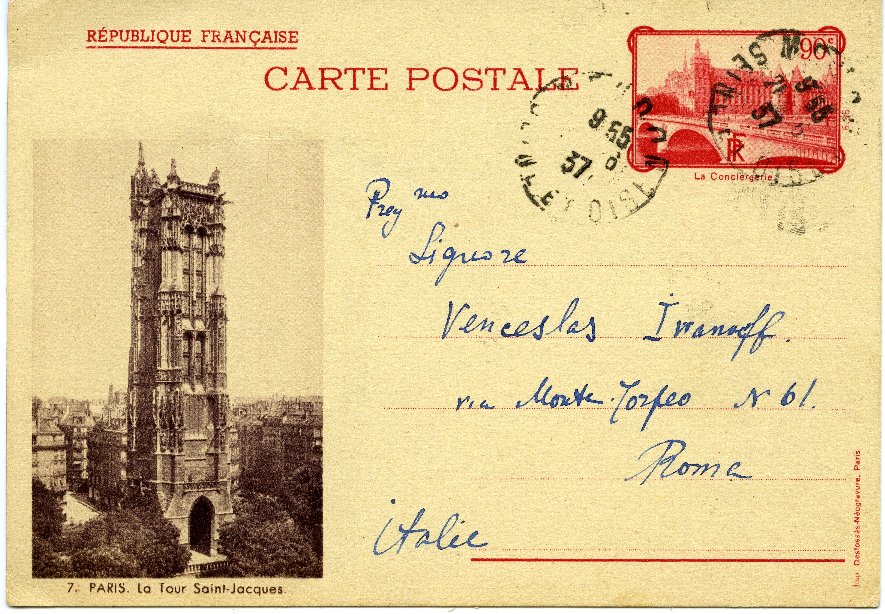 RÉPUBLIQUE FRANÇAISE
CARTE POSTALE
90c
RF
La Conciergerie
9 55
37
SEINE ET OISE
9 55
37
Preg mo
Signore
Venceslas Iwanoff.
via Monte Tarpeo N 61.
Roma
Italie
7. PARIS. La Tour Saint-Jacques.
Imp. Desfossés-Néogravure, Paris